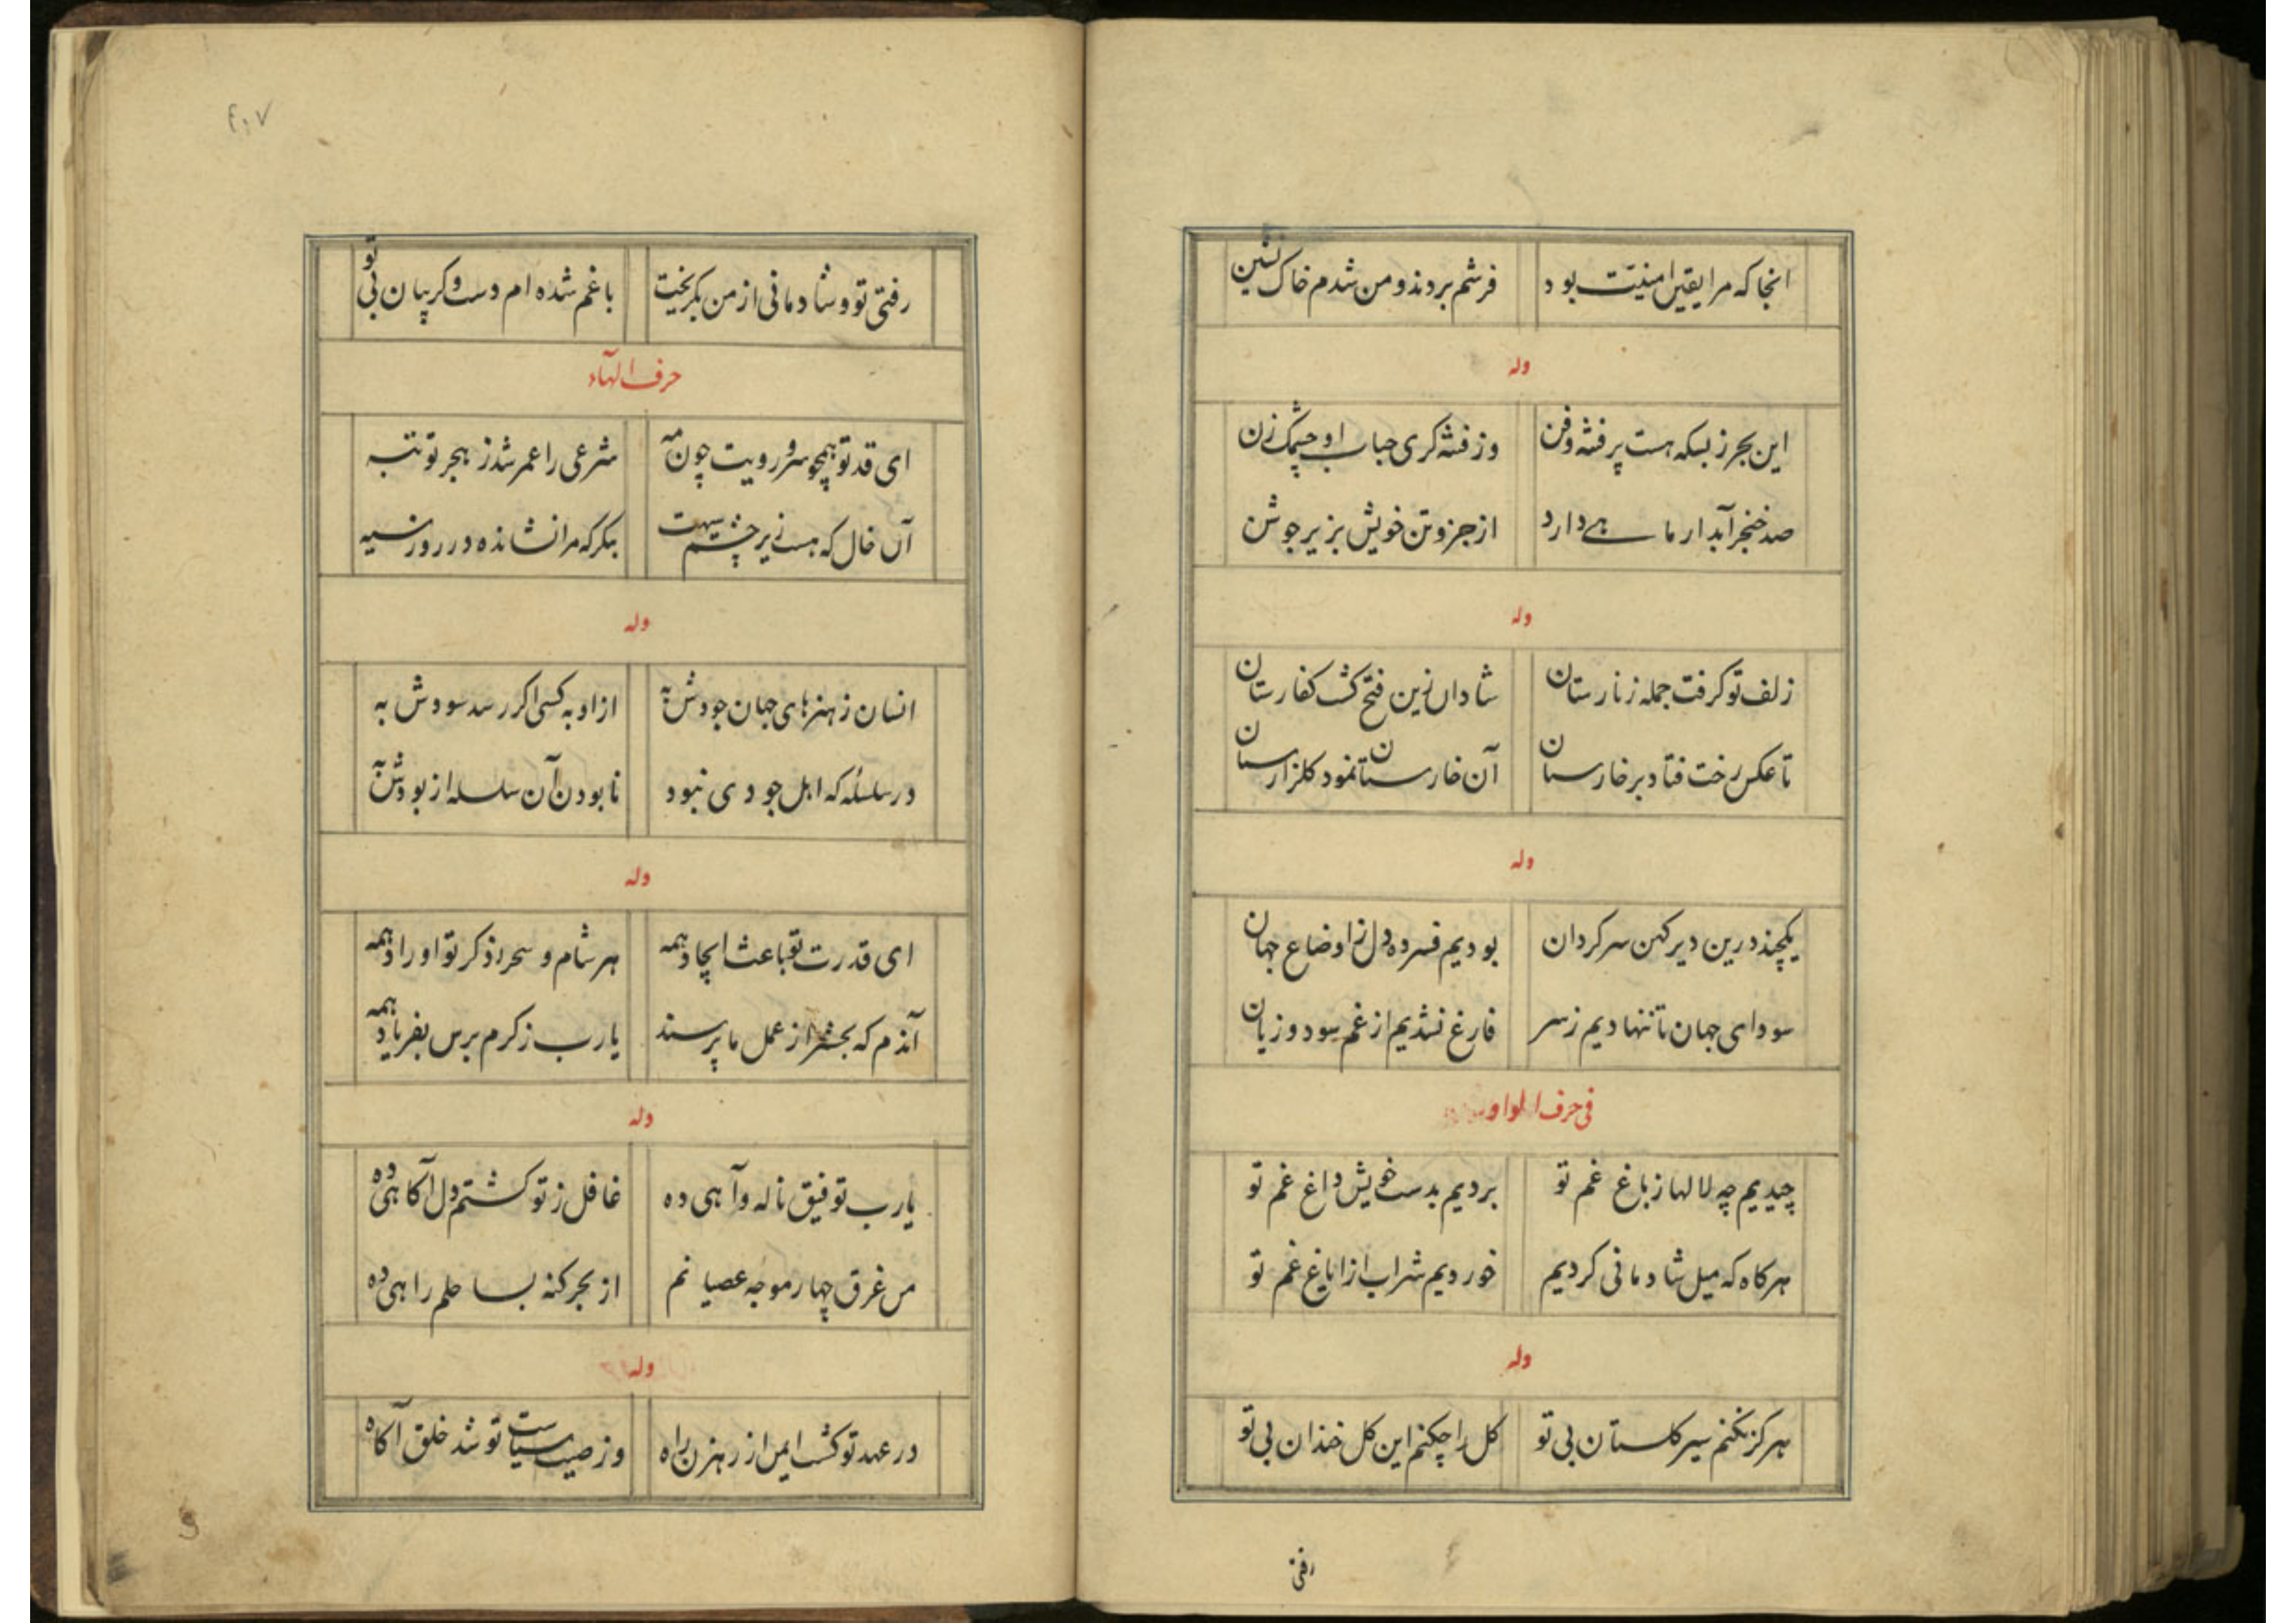 انجا که مرا یقین امنیت بود فرشم بردند و من شدم خاک نشین
وله
این بحر ز بسکه هست پر فتنه و فن وز فتنه کری حباب او چشمک زن
صد خنجر آبدار ماهے دارد از جزو تن خویش بزیر جوشن
وله
زلف تو کرفت جمله زنارستان شادان زین فتح کشت کفارستان
تا عکس رخت فتاد بر خارستان آن خارستان نمود کلزارستان
وله
یکچند درین دیر کهن سرکردان بودیم فسرده دل ز اوضاع جهان
سودای جهان تا ننهادیم ز سر فارغ نشدیم از غم سود و زیان
فی حرف الواو
چیدیم چه لالها ز باغ غم تو بردیم بدست خویش داغ غم تو
هرکاه که میل شادمانی کردیم خوردیم شراب از ایاغ غم تو
وله
هرکز نکنم سیر کلستان بی تو کل را چکنم این کل خندان بی تو
رفتی
۴۰۷
رفتی تو و شادمانی از من بکریخت با غم شده ام دست و کریبان بی تو
حرف الهآء
ای قد تو همچو سرو رویت چون مه شرعی را عمر شد ز هجر تو تبه
آن خال که هست زیر چشم سیهت بنکر که مرا نشانده در روز سیه
وله
انسان ز هنرهای جهان جودش به از او به کسی اکر رسد سودش به
در سلسلهٔ که اهل جودی نبود نابودن آن سلسله از بودش به
وله
ای قدرت تو باعث ایجاد همه هر شام و سحر ذکر تو اوراد همه
آندم که بحشر از عمل ما پرسند یارب ز کرم برس بفریاد همه
وله
یارب توفیق ناله و آهی ده غافل ز تو کشتم دل آکاهی ده
من غرق چهار موجه عصیانم از بحر کنه بساحلم راهی ده
وله
در عهد تو کشت ایمن از رهزن راه وز صیت سیاست تو شد خلق آکاه